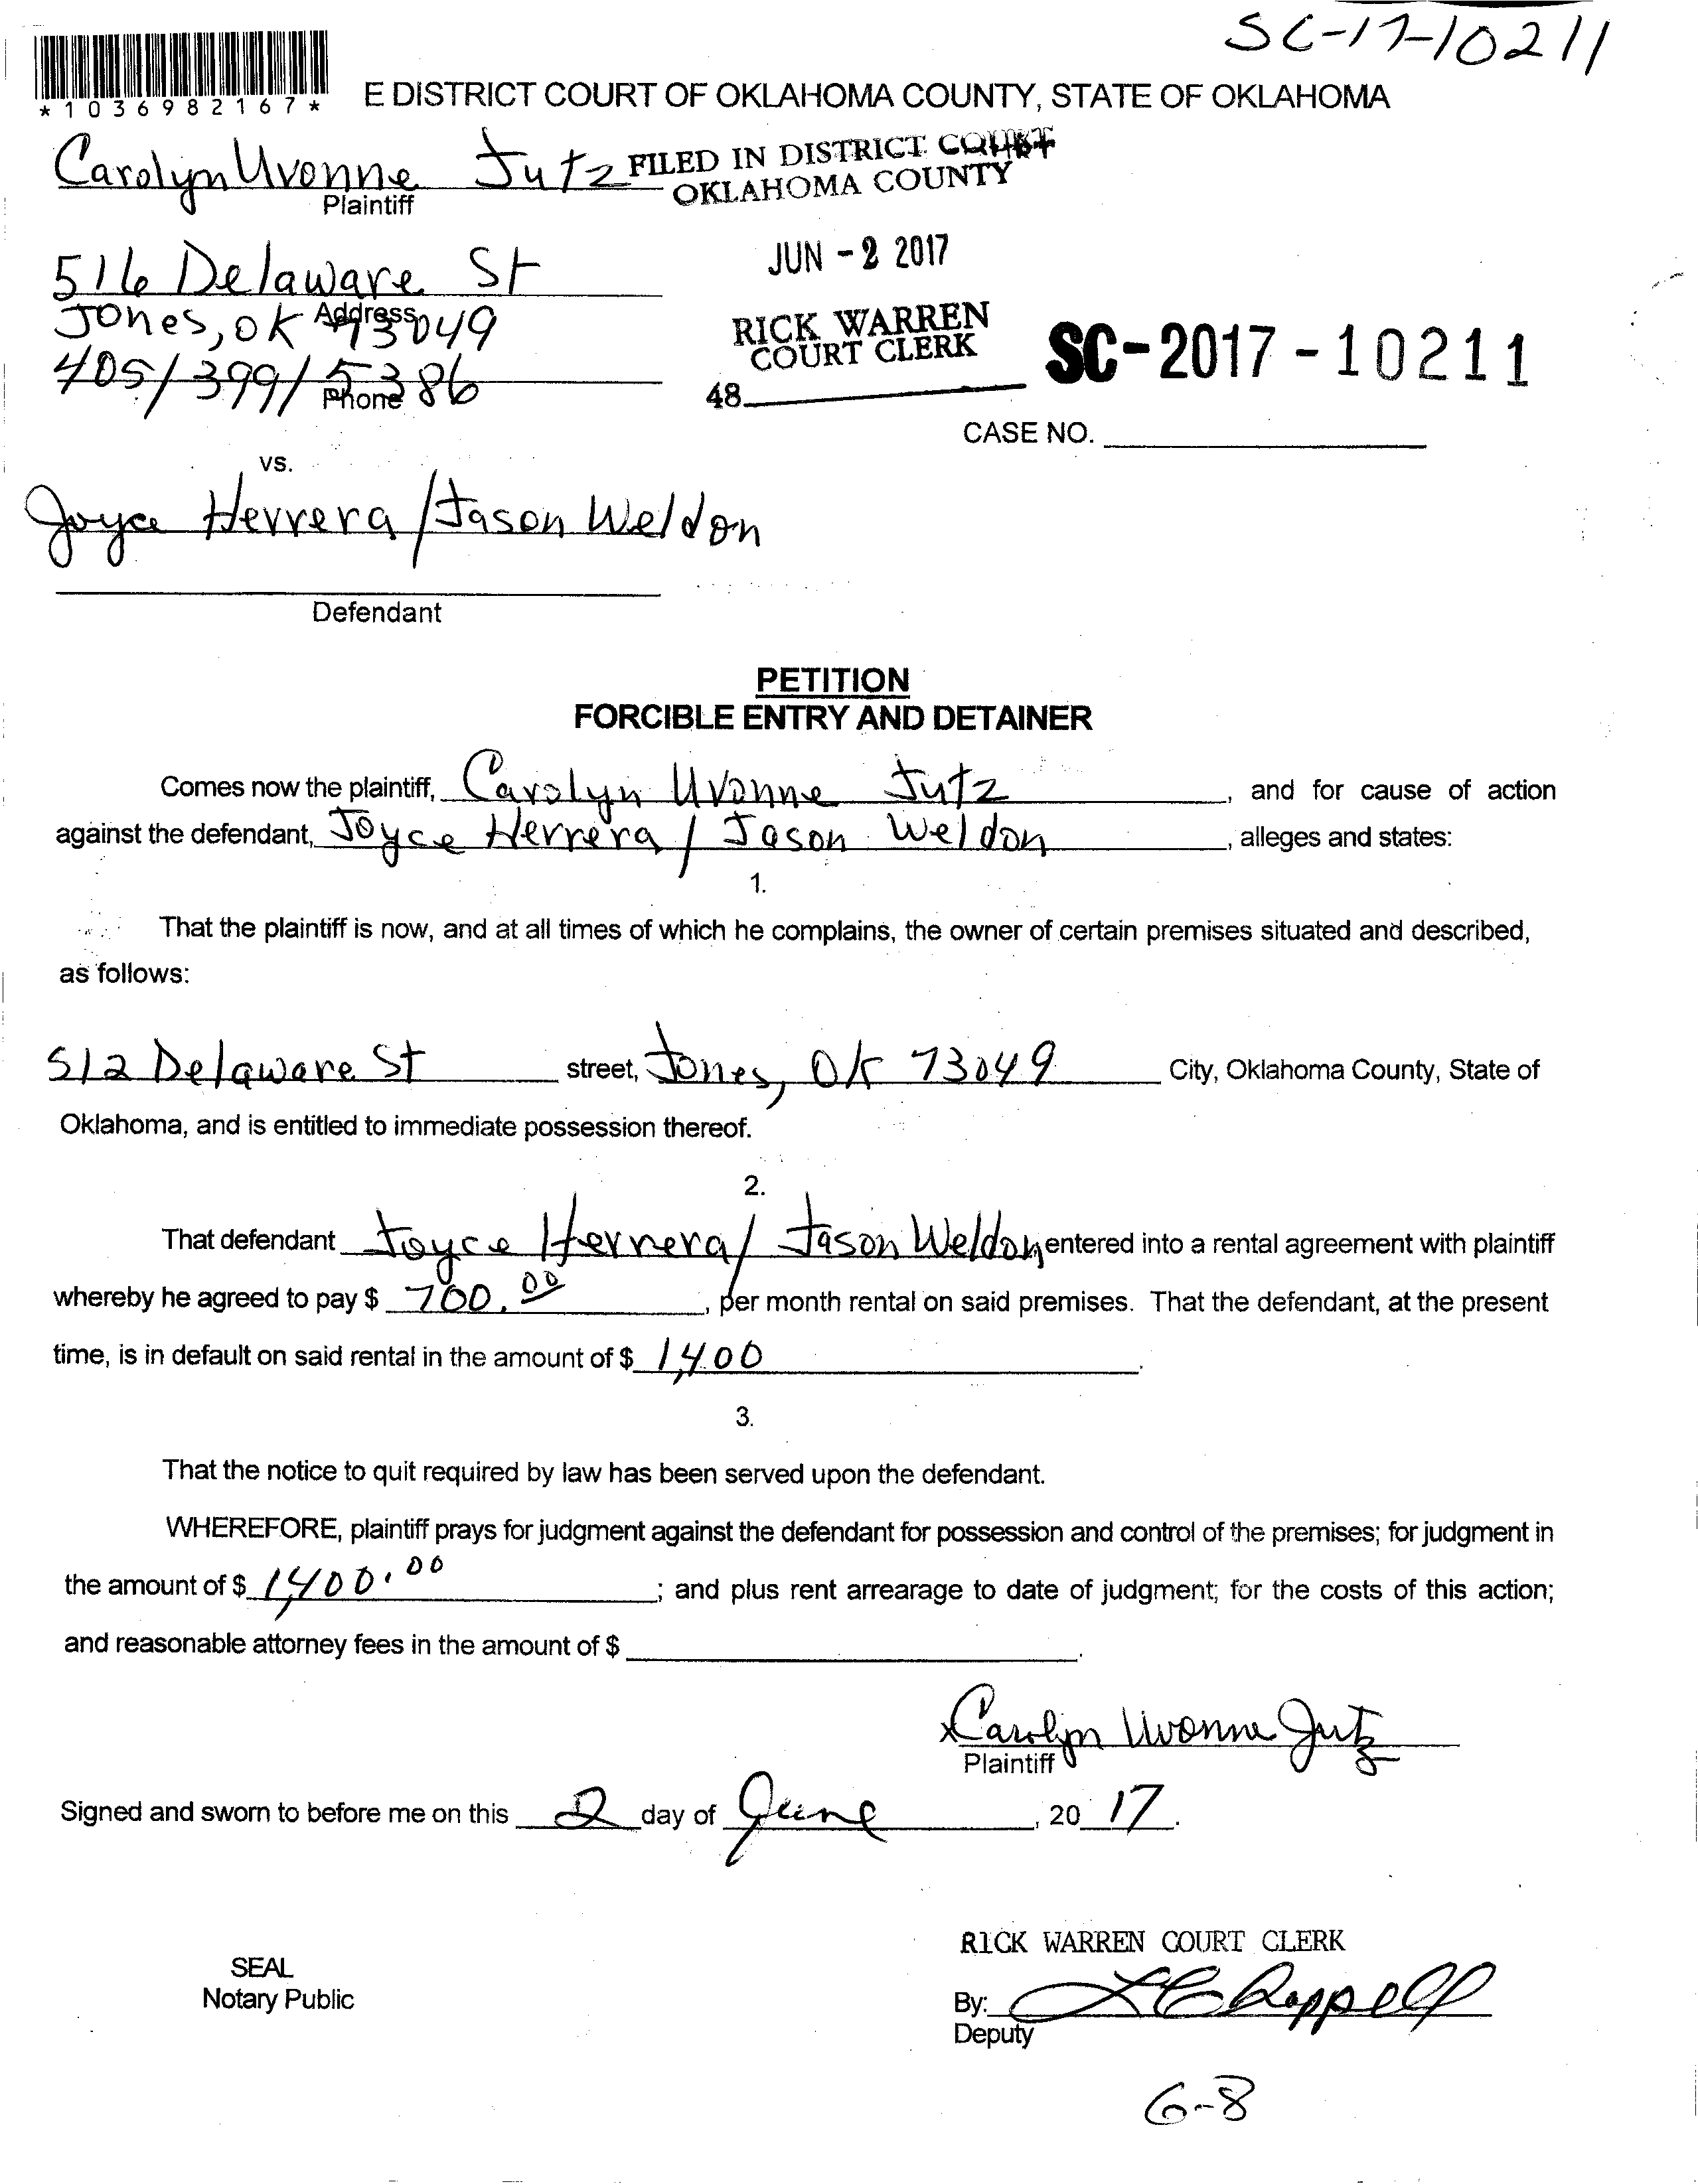 SC-17-10211
*1036982167*
E DISTRICT COURT OF OKLAHOMA COUNTY, STATE OF OKLAHOMA
Carolyn Uvonne Jutz
FILED IN DISTRICT COURT
OKLAHOMA COUNTY
Plaintiff
JUN - 2 2017
516 Delaware St
Jones, OK 73049
Address
RICK WARREN
COURT CLERK
SC-2017-10211
405/399/5386
Phone
48
CASE NO.
vs.
Joyce Herrera / Jason Weldon
Defendant
PETITION
FORCIBLE ENTRY AND DETAINER
Comes now the plaintiff, Carolyn Uvonne Jutz, and for cause of action
against the defendant, Joyce Herrera / Jason Weldon, alleges and states:
1.
That the plaintiff is now, and at all times of which he complains, the owner of certain premises situated and described,
as follows:
512 Delaware St street, Jones, OK 73049 City, Oklahoma County, State of
Oklahoma, and is entitled to immediate possession thereof.
2.
That defendant Joyce Herrera / Jason Weldon entered into a rental agreement with plaintiff
whereby he agreed to pay $ 700.00, per month rental on said premises. That the defendant, at the present
time, is in default on said rental in the amount of $ 1,400.
3.
That the notice to quit required by law has been served upon the defendant.
WHEREFORE, plaintiff prays for judgment against the defendant for possession and control of the premises; for judgment in
the amount of $ 1,400.00; and plus rent arrearage to date of judgment; for the costs of this action;
and reasonable attorney fees in the amount of $ .
x Carolyn Uvonne Jutz
Plaintiff
Signed and sworn to before me on this 2 day of June, 20 17.
RICK WARREN COURT CLERK
SEAL
Notary Public
By: L Chappell
Deputy
6-8